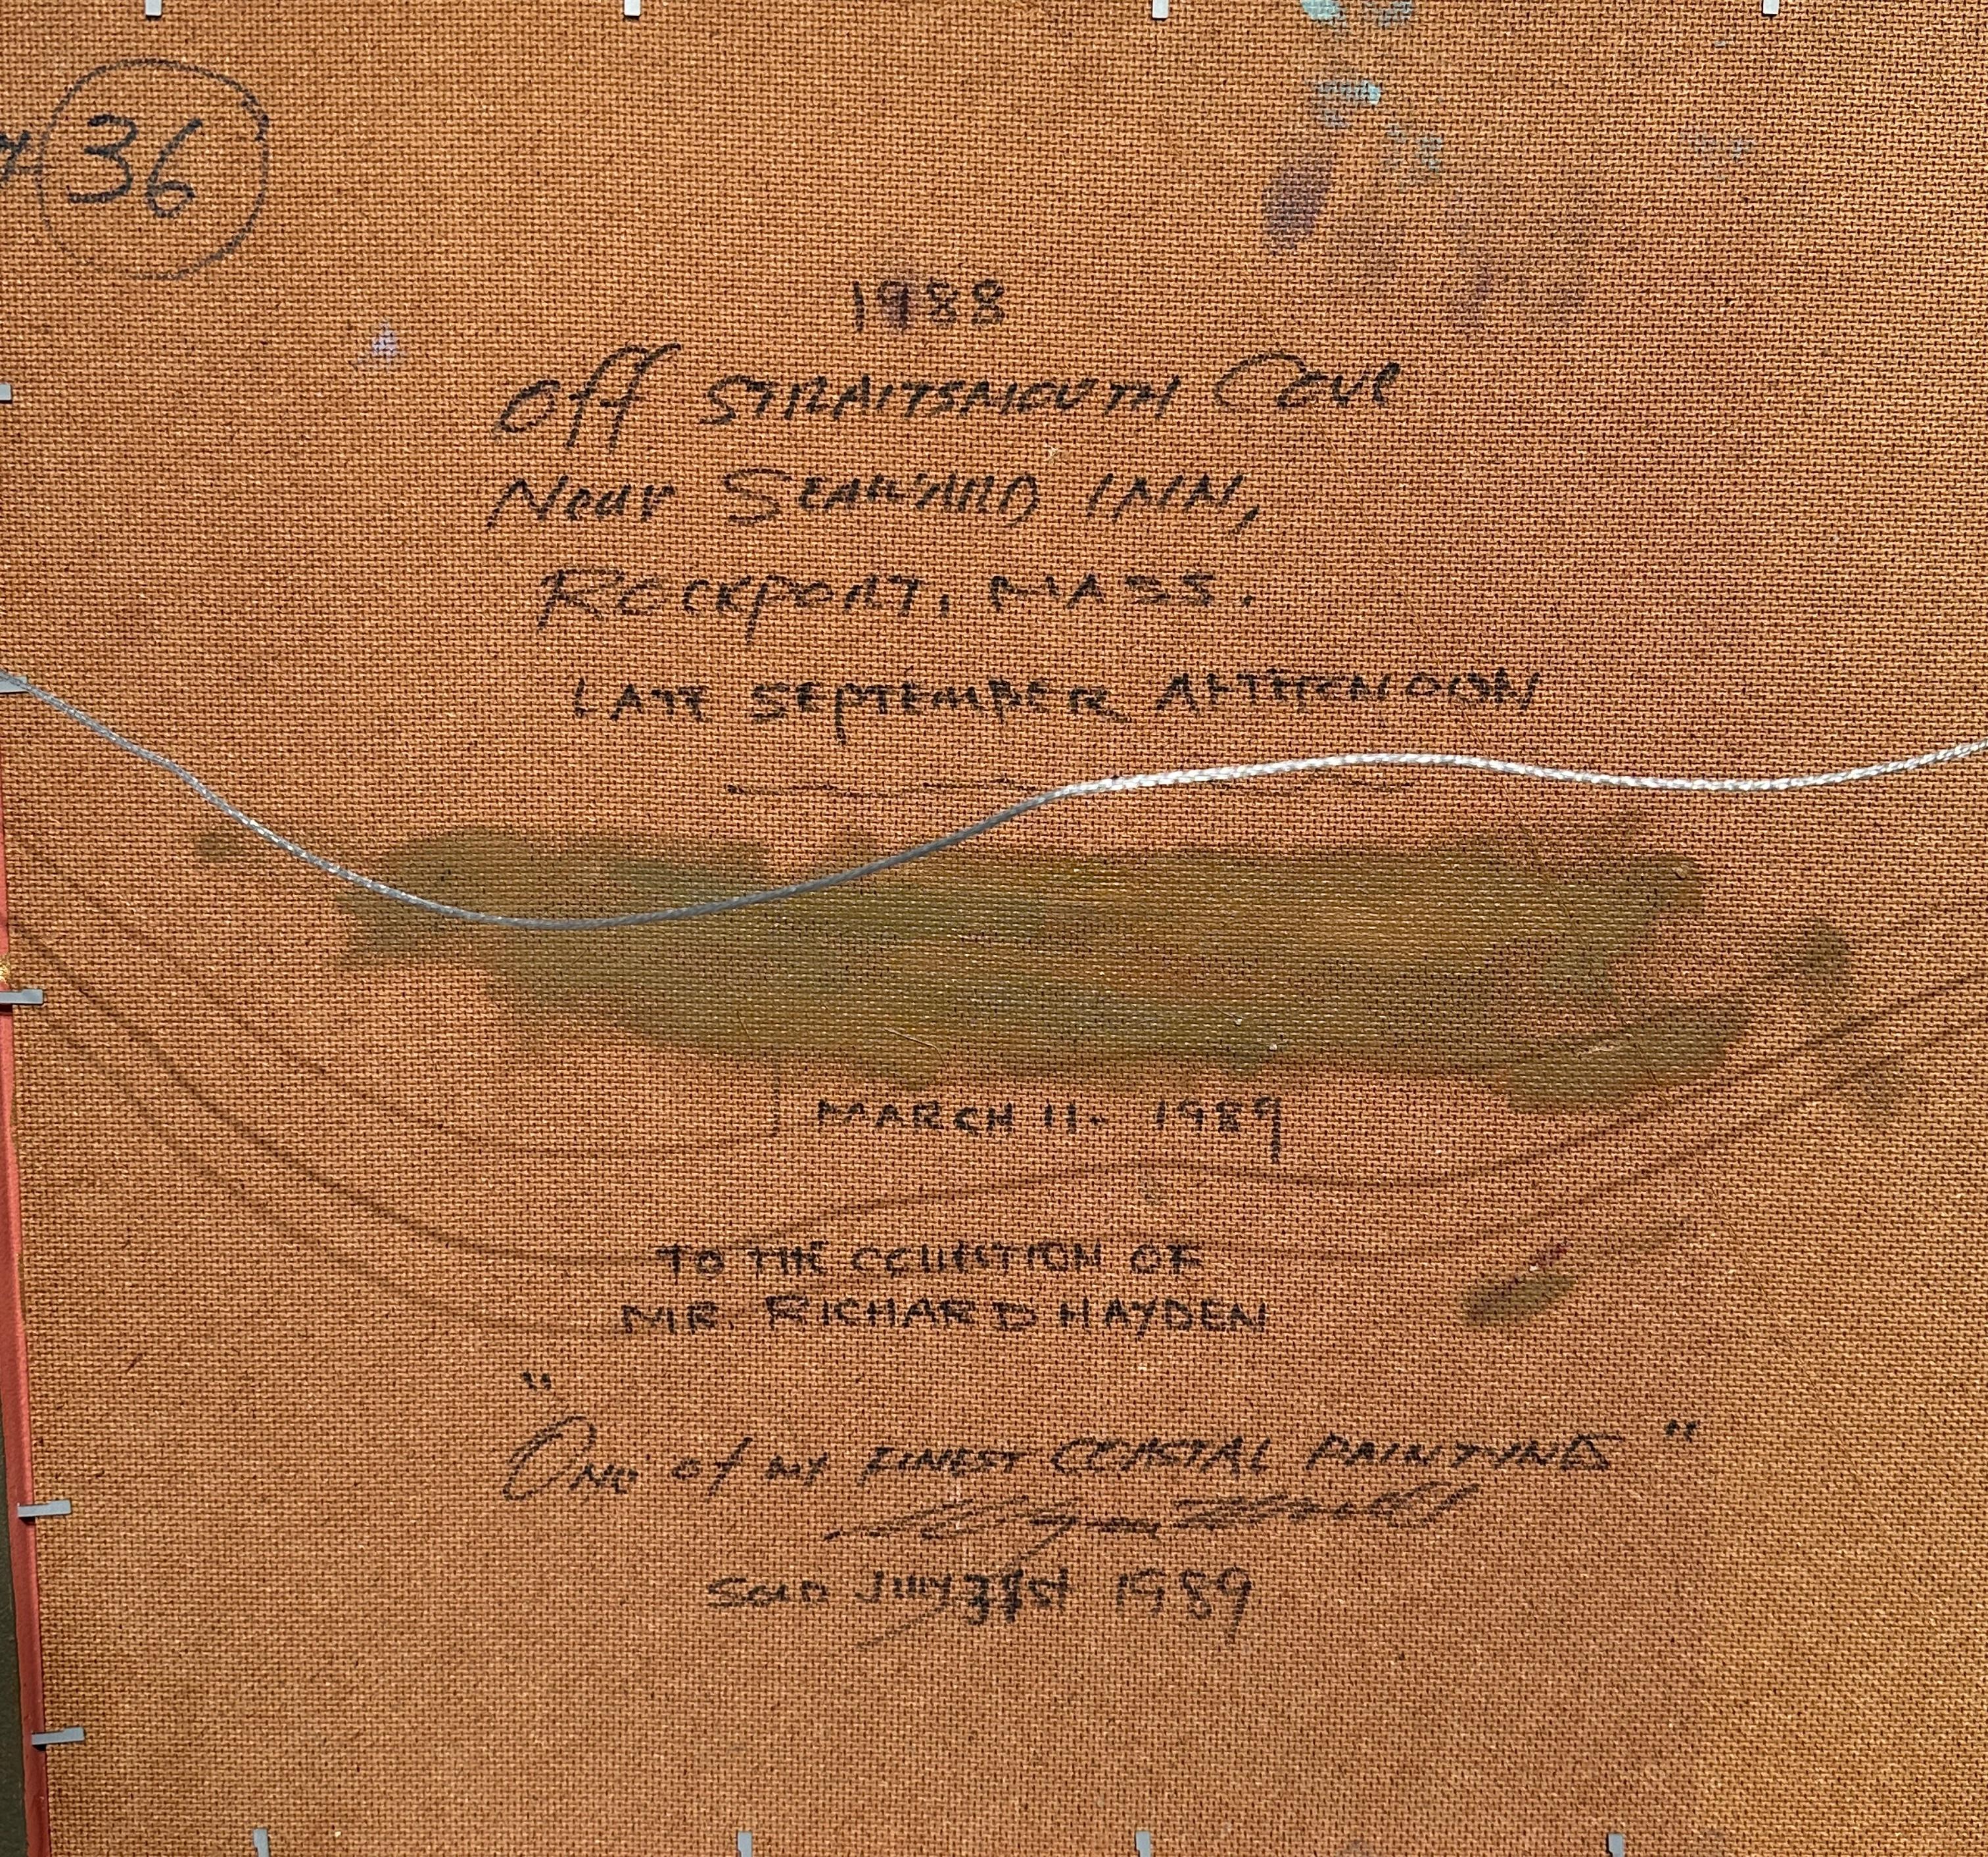 x 36
1988
Off STRAITSMOUTH COVE
Near SEAWARD INN,
ROCKPORT, MASS.
LATE SEPTEMBER AFTERNOON
MARCH 11- 1989
TO THE COLLECTION OF
MR. RICHARD HAYDEN
"
One of my FINEST COASTAL PAINTINGS "
SOLD JULY 31st 1989